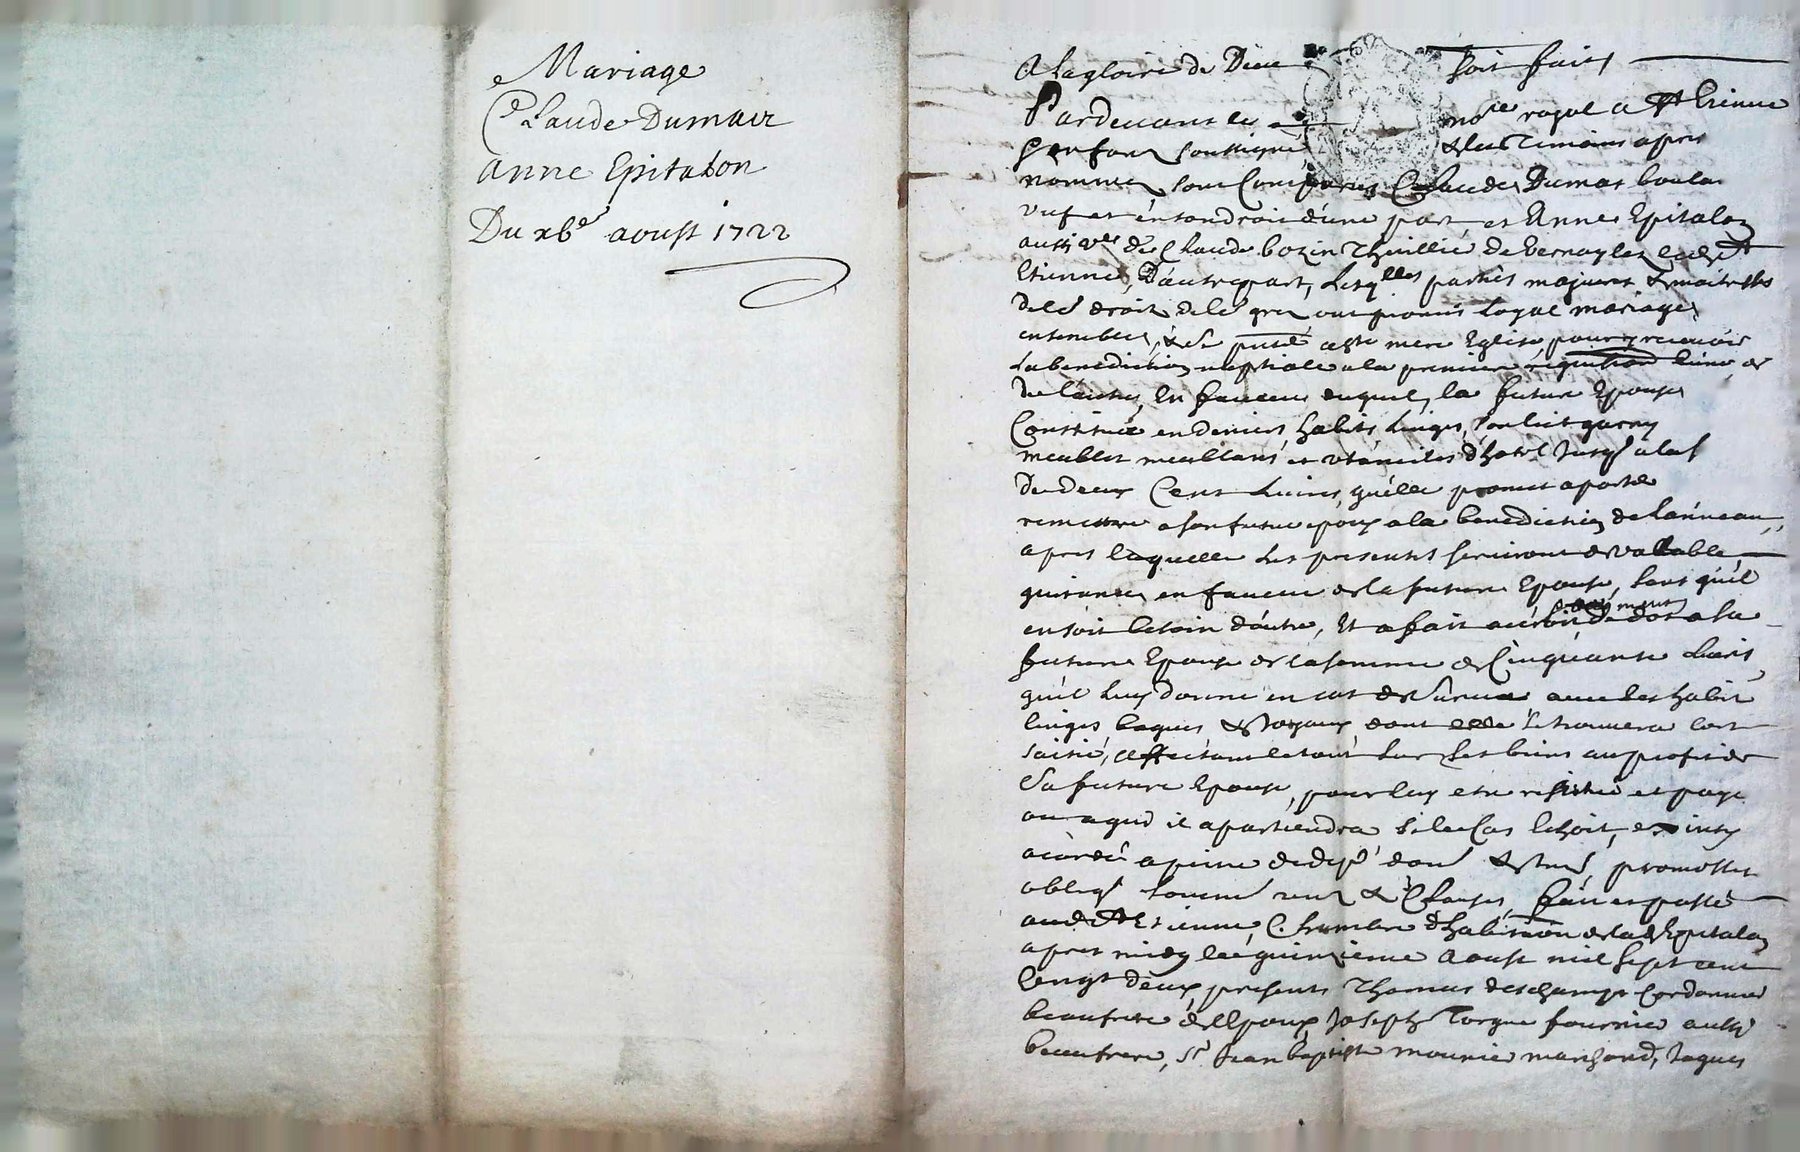 Mariage
Claude Dumair
Anne Epitalon
Du xbe aoust 1722
A la gloire de Dieu soit fait
Pardevant les nore royal a St Etienne
en forez soussigné & les Temoins apres
nommez sont Comparus Claude Dumas boula
vuf et en son droit d'une part et Anne Epitalon
aussi vve de Claude bozin de Vernay les led St
Etienne, D'autre part, Lesqlles parties majeures & maitresses
de ls droits de ls gré ont promis Loyal mariage
ensemble, & se a ste mere Eglise pour y recevoir
La benediction nuptiale a la premiere requisition l'une de
de l'autre, En faveur duquel, la future Epouse
Constitue en deniers habits Linges, son lict garny
meubles meublans et utanciles d'hotel Jusqs a la s
de deux Cent Livres, qu'elle promet aporter
remettre a son futur epoux a la benediction de L'anneau,
apres laquelle Les presentes serviront de valable
quitance en faveur de la future Epouse, sans qu'il
en soit besoin d'autre, Et a fait de dot a sa
future Epouse de la somme de Cinquante Livres,
qu'il Luy donne en cas de Survie avec les habits
linges bagues & Joyaux dont elle se trouvera lors
saisie, affectant le tout sur ses biens au profit de
Sa future Epouse, pour luy etre et payé
ou a qui il apartiendra si le Cas Echoit, ainsy
acordé a peine de dep doms & Intes, promettes
obliges soumes renes & Clauses, fait et passé
aud St Etienne, Chambre d'habitaôn de lad Epitalon
apres midy le quinzieme Aoust mil sept cent
vingt deux, presents Thomas deschamps Cordonnier
beaufrere de l'Epoux, Joseph Torgue fournie aussy
beaufrere, Sr Jean baptiste mounier marchand, Jaques